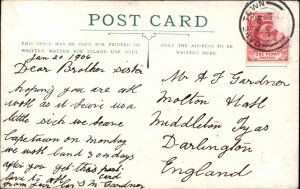 POST CARD
THIS SPACE MAY BE USED FOR PRINTED OR
WRITTEN MATTER FOR INLAND USE ONLY
ONLY THE ADDRESS TO BE
WRITTEN HERE.
TOWN
Jan 20 1906
Dear Brother sister
hoping you are all
well as it leaves us a
little sick we
Capetown on monday
we will land 3 days
after you get this post
card
love to all
from
S M Gardner
Mr A F Gardner
Molton Hall
Middleton Tyas
Darlington
England